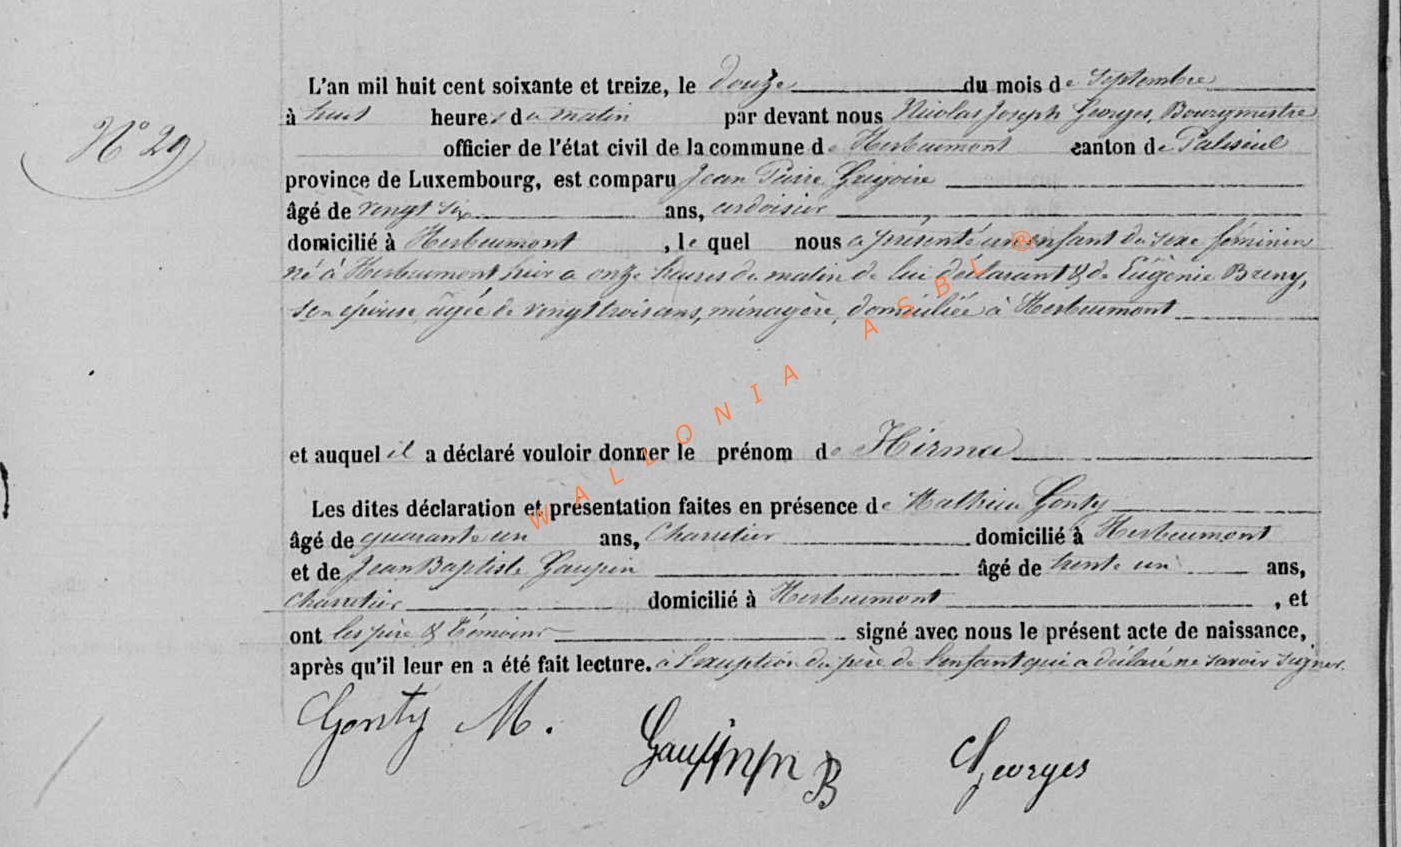 N° 29
L'an mil huit cent soixante et treize, le douze du mois de Septembre
à huit heures du matin par devant nous Nicolas Joseph Georges, Bourgmestre
officier de l'état civil de la commune de Herbeumont canton de Paliseul
province de Luxembourg, est comparu Jean Pierre Grégoire
âgé de vingt six ans, ardoisier
domicilié à Herbeumont, le quel nous a présenté un enfant du sexe féminin
né à Herbeumont hier a onze heures du matin de lui déclarant & de Eugénie Breny,
son épouse âgée de vingt trois ans, ménagère, domiciliée à Herbeumont
et auquel il a déclaré vouloir donner le prénom de Hirma
Les dites déclaration et présentation faites en présence de Mathieu Gonty
âgé de quarante un ans, Charretier domicilié à Herbeumont
et de Jean Baptiste Gaupin âgé de trente un ans,
Charretier domicilié à Herbeumont, et
ont les père & témoins signé avec nous le présent acte de naissance,
après qu'il leur en a été fait lecture. à l'exception du père de l'enfant qui a déclaré ne savoir signer.
Gonty M.
B
Georges
WALLONIA ASBL ®